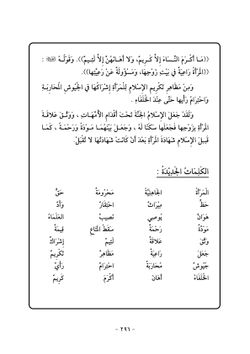 ((مَا أَكْرَمَ النِّسَاءَ إِلاَّ كَرِيمٌ، وَلاَ أَهَانَهُنَّ إِلاَّ لَئِيمٌ)). وَقَوْلُهُ ﷺ :
((المَرْأَةُ رَاعِيَةٌ فِي بَيْتِ زَوْجِهَا، وَمَسْؤُولَةٌ عَنْ رَعِيَّتِهَا)).
وَمِنْ مَظَاهِرِ تَكْرِيمِ الإِسْلاَمِ لِلْمَرْأَةِ إِشْرَاكُهَا فِي الجُيُوشِ المُحَارِبَةِ
وَاحْتِرَامُ رَأْيِهَا حَتَّى عِنْدَ الخُلَفَاءِ .
وَلَقَدْ جَعَلَ الإِسْلاَمُ الجَنَّةَ تَحْتَ أَقْدَامِ الأُمَّهَاتِ ، وَوَثَّقَ عَلاَقَةَ
المَرْأَةِ بِزَوْجِهَا فَجَعَلَهَا سَكَنًا لَهُ ، وَجَعَلَ بَيْنَهُمَا مَوَدَّةً وَرَحْمَةً ، كَمَا
قَبِلَ الإِسْلاَمُ شَهَادَةَ المَرْأَةِ بَعْدَ أَنْ كَانَتْ شَهَادَتُهَا لاَ تُقْبَلُ.
الكَلِمَاتُ الجَدِيدَةُ :
المَرْأَةُ الجَاهِلِيَّةُ مَحْرُومَةٌ حَقٌّ
حَظٌّ مِيرَاثٌ احْتِقَارٌ وَأْدٌ
هَوَانٌ يُوصِي نَصِيبٌ العُلَمَاءُ
مَوَدَّةٌ رَحْمَةٌ سَقَطُ المَتَاعِ قِيمَةٌ
وَثَّقَ عَلاَقَةٌ لَئِيمٌ إِشْرَاكٌ
جَعَلَ رَاعِيَةٌ مَظَاهِرُ تَكْرِيمٌ
جُيُوشٌ مُحَارِبَةٌ احْتِرَامٌ رَأْيٌ
الخُلَفَاءُ أَهَانَ أَكْرَمَ كَرِيمٌ
- ٢٩٦ -